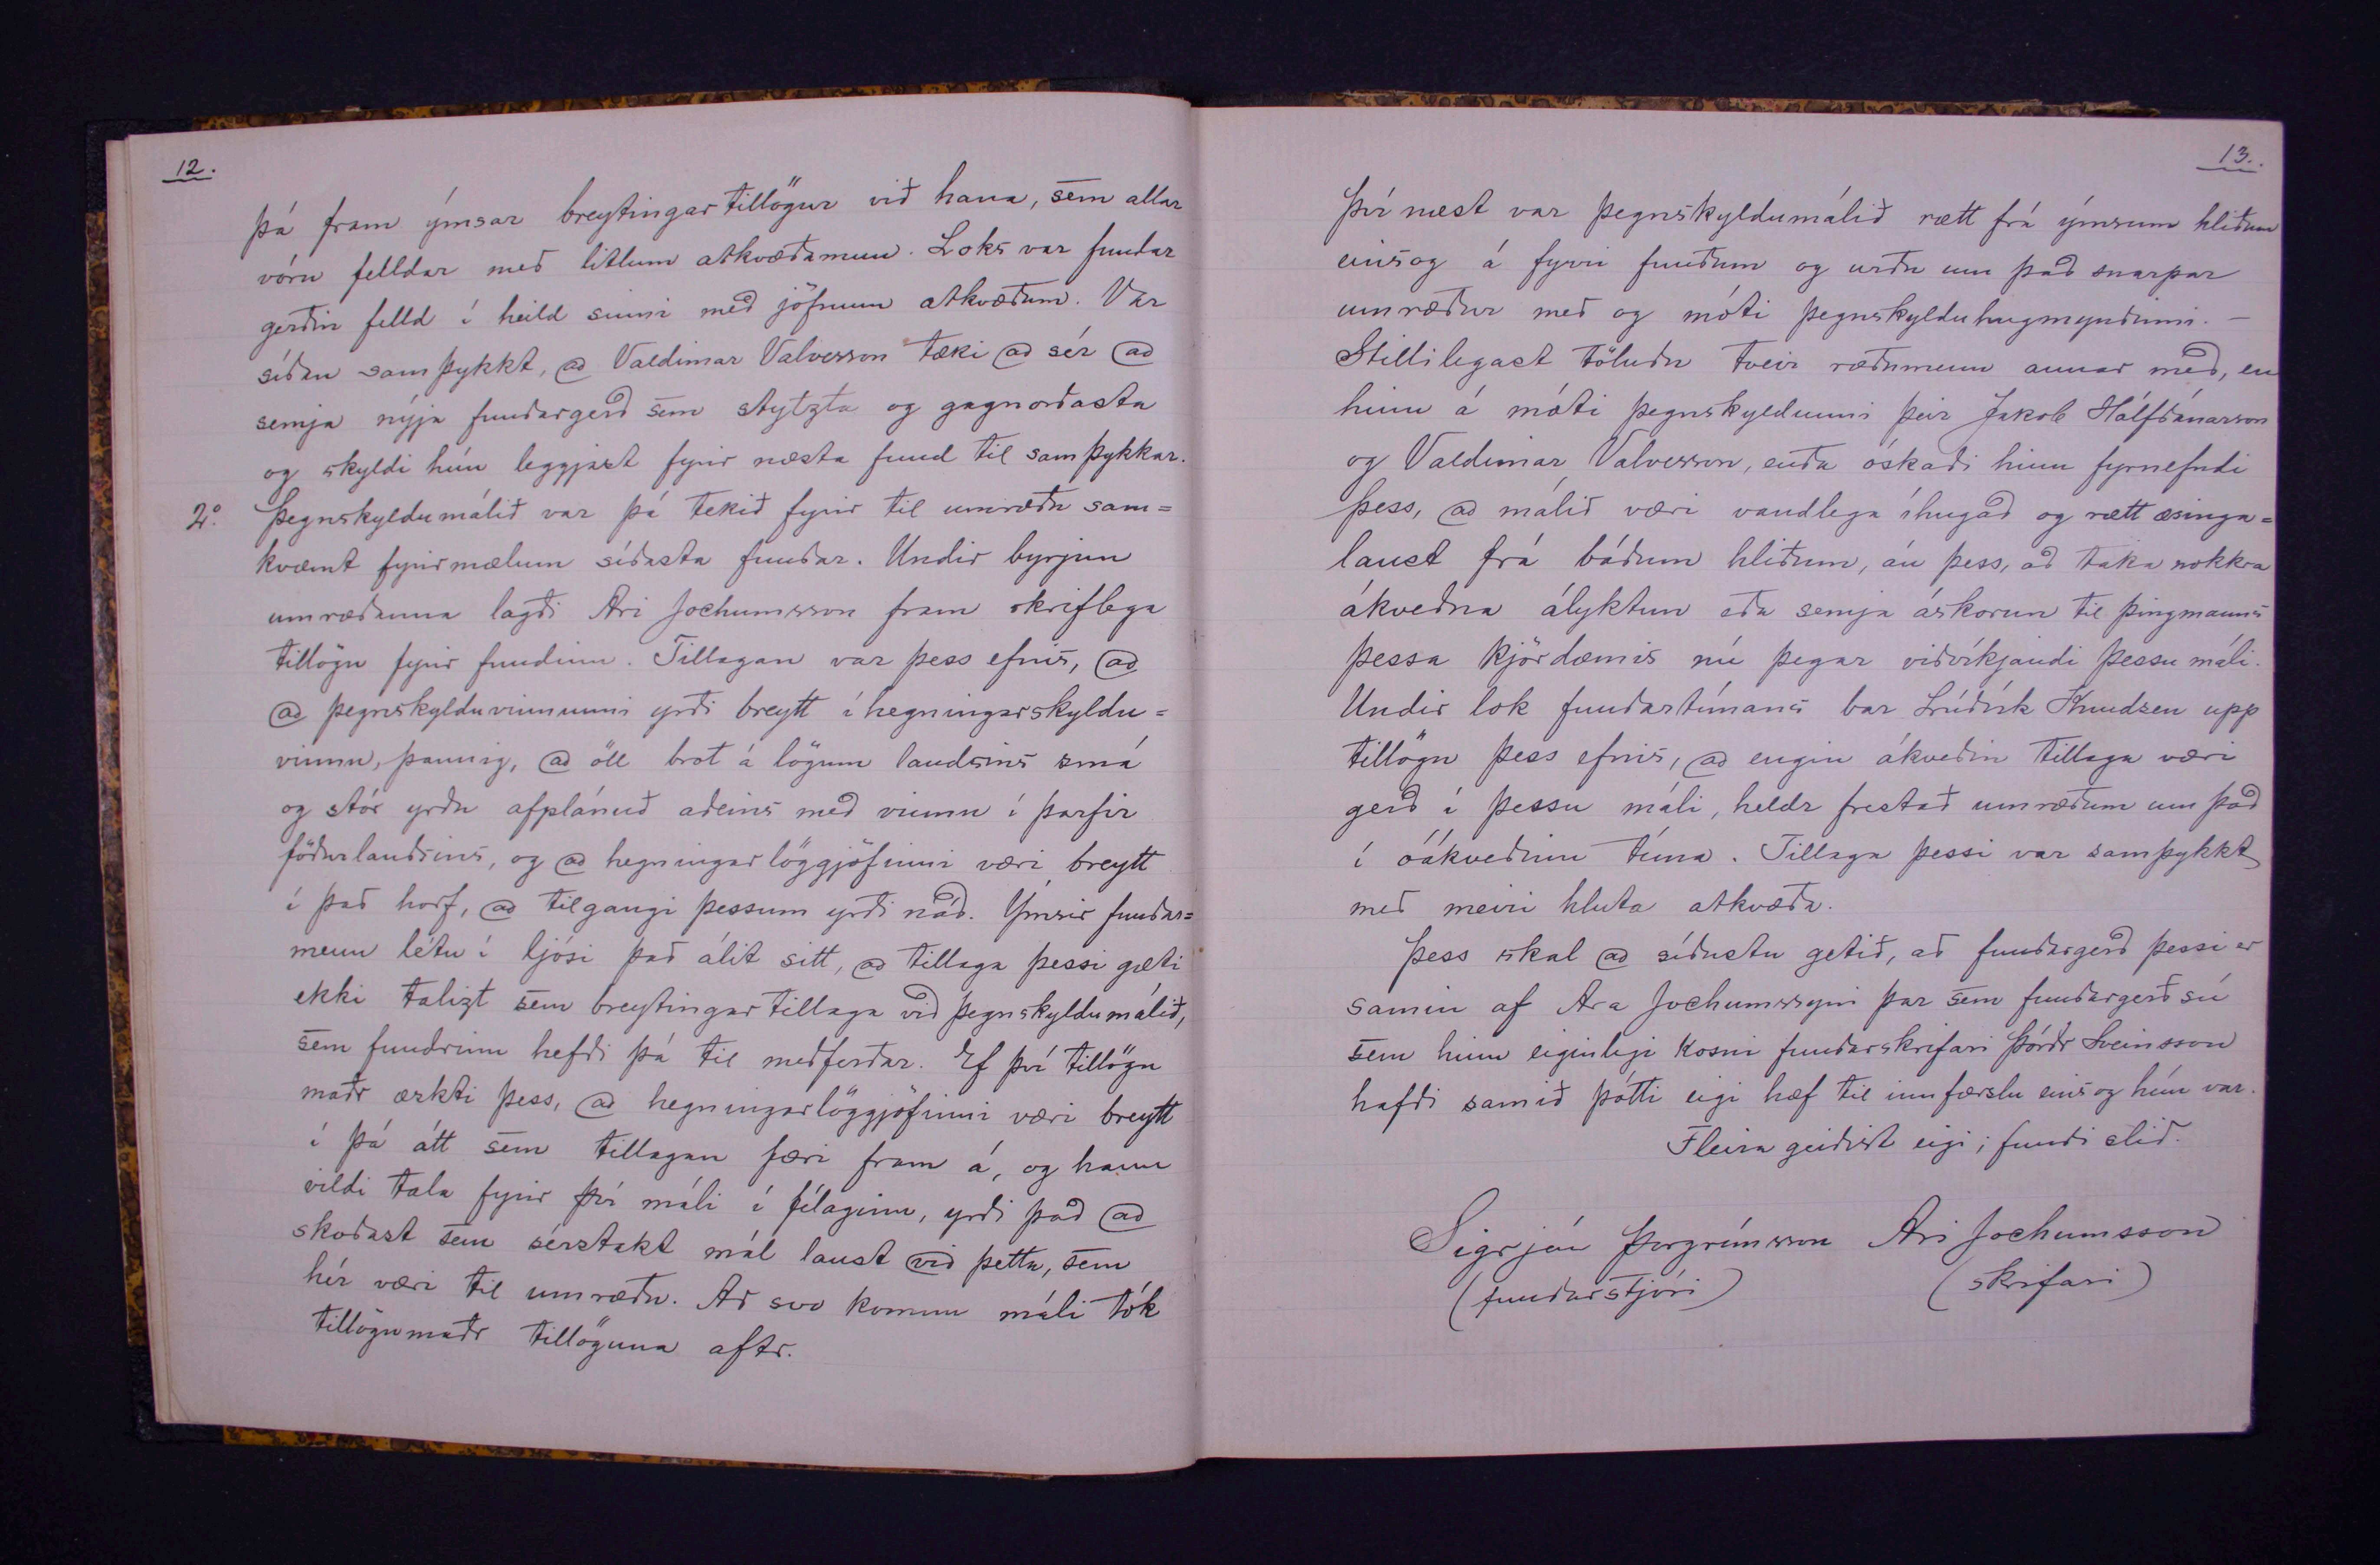 12.
þá fram ýmsar breytingartillögur við hana, sem allar
vóru felldar með litlum atkvæðamun. Loks var fundar
gerðin felld í heild sinni með jöfnum atkvæðum. Var
síðan samþykkt, að Valdimar Valvesson tæki að sér að
semja nýja fundargerð sem stytzta og gagnorðasta
og skyldi hún leggjast fyrir næsta fund til samþykkar.
2º. Þegnskyldumálið var þá tekið fyrir til umræðu sam=
kvæmt fyrirmælum síðasta fundar. Undir byrjun
umræðanna lagði Ari Jochumsson fram skriflega
tillögu fyrir fundinn. Tillagan var þess efnis, að
að þegnskylduvinnunni yrði breytt í hegningarskyldu=
vinnu, þannig, að öll brot á lögum landsins smá
og stór yrðu afplánuð aðeins með vinnu í þarfir
föðurlandsins, og að hegningarlöggjöfinni væri breytt
í það horf, að tilgangi þessum yrði náð. Ýmsir fundar=
menn létu í ljósi það álit sitt, að tillaga þessi gæti
ekki talizt sem breytingartillaga við þegnskyldumálið,
sem fundrinn hefði þá til meðferðar. Ef því tillögu
maðr æskti þess, að hegningarlöggjöfinni væri breytt
í þá átt sem tillagan færi fram á, og hann
vildi tala fyrir því máli í félaginu, yrði það að
skoðast sem sérstakt mál laust við þetta, sem
hér væri til umræðu. Að svo komnu máli tók
tillögumaðr tillöguna aftr.
13.
Því næst var þegnskyldumálið rætt frá ýmsum hliðum
einsog á fyrri fundum og urðu um það snarpar
umræður með og móti þegnskylduhugmyndinni. –
Stillilegast töluðu tveir ræðumenn annar með, en
hinn á móti þegnskyldunni þeir Jakob Hálfdánarson
og Valdimar Valvesson, enda óskaði hinn fyrnefndi
þess, að málið væri vandlega íhugað og rætt æsinga=
laust frá báðum hliðum, án þess, að taka nokkra
ákveðna ályktun eða semja áskorun til þingmanns
þessa kjördæmis nú þegar viðvíkjandi þessu máli.
Undir lok fundartímans bar Lúðvík Knudsen upp
tillögu þess efnis, að engin ákveðin tillaga væri
gerð í þessu máli, heldr frestað umræðum um það
í óákveðinn tíma. Tillaga þessi var samþykkt
með meiri hluta atkvæða.
Þess skal að síðustu getið, að fundargerð þessi er
samin af Ara Jochumssyni þar sem fundargerð sú
sem hinn eiginlegi kosni fundarskrifari Þórðr Sveinsson
hafði samið þótti eigi hæf til innfærslu einsog hún var.
Fleira gerðist eigi; fundi slitið.
Sigrjón Þorgrímsson Ari Jochumsson
(fundarstjóri) (skrifari)